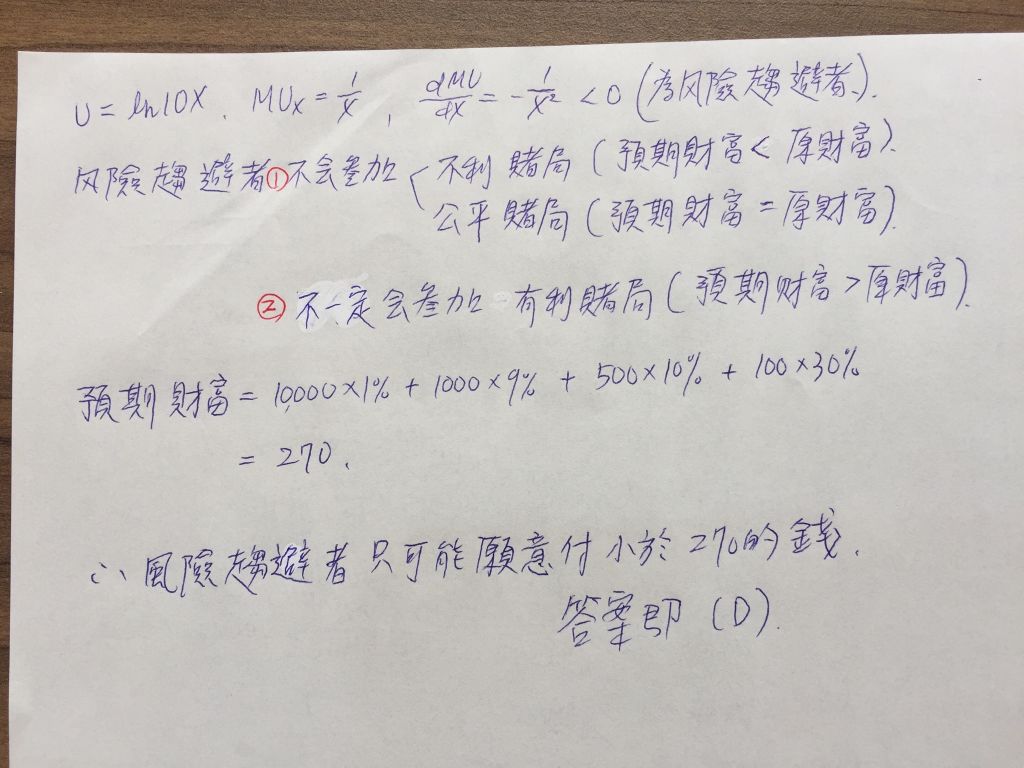 U = ln10X, MUx = 1/X, dMU/dX = -1/X² < 0 (為风險趨避者).
风險趨避者①不会參加 < 不利賭局 (預期財富 < 原財富).
公平賭局 (預期財富 = 原財富).
② 不一定会參加 有利賭局 (預期财富 > 原財富).
預期財富 = 10,000×1% + 1000×9% + 500×10% + 100×30%
= 270.
∴ 風險趨避者只可能願意付小於270的錢.
答案即 (D).